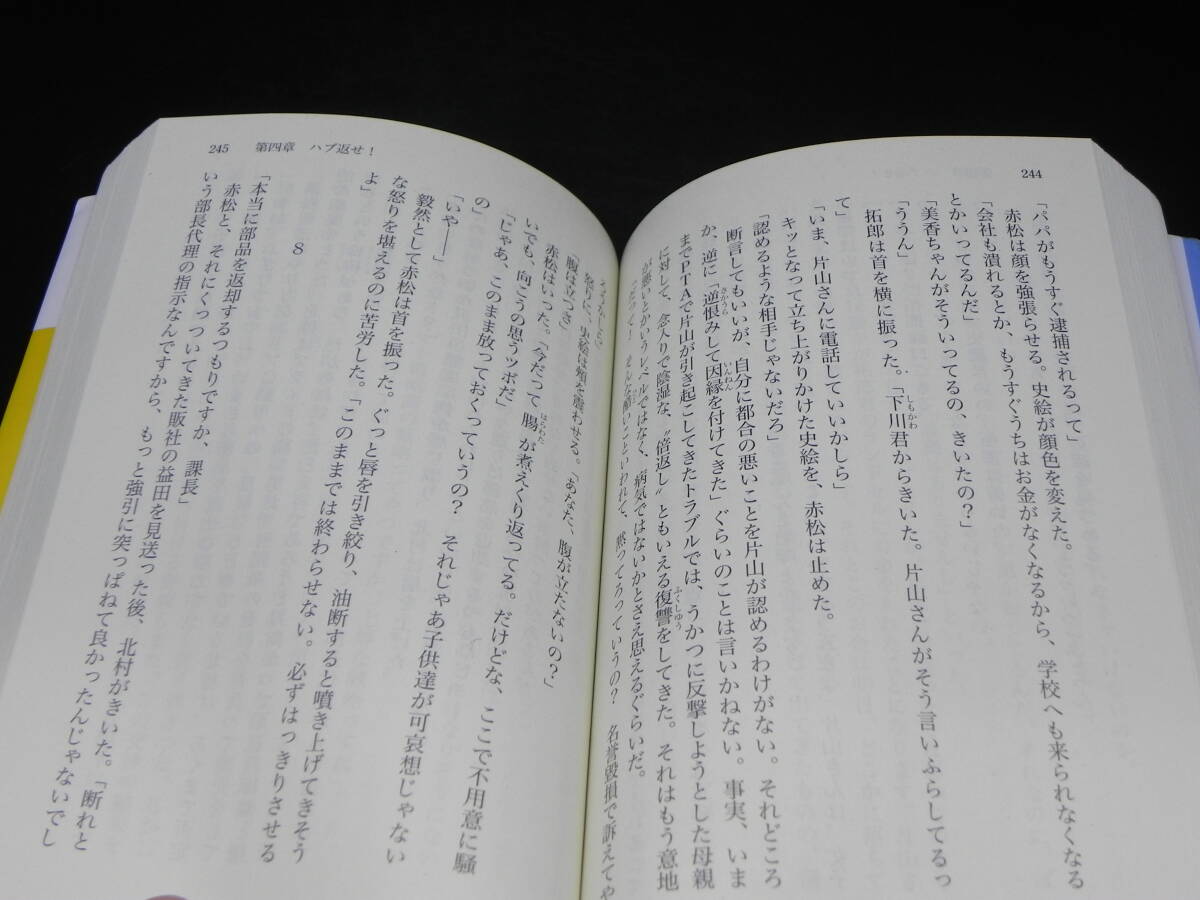 244
「パパがもうすぐ逮捕されるって」
赤松は顔を強張らせる。史絵が顔色を変えた。
「会社も潰れるとか、もうすぐうちはお金がなくなるから、学校へも来られなくなる
とかいってるんだ」
「美香ちゃんがそういってるの、きいたの？」
「ううん」
拓郎は首を横に振った。「下川君からきいた。片山さんがそう言いふらしてるっ
しもかわ
て」
「いま、片山さんに電話していいかしら」
キッとなって立ち上がりかけた史絵を、赤松は止めた。
「認めるような相手じゃないだろ」
断言してもいいが、自分に都合の悪いことを片山が認めるわけがない。それどころ
か、逆に「逆恨みして因縁を付けてきた」ぐらいのことは言いかねない。事実、いま
さかうら
いんねん
までPTAで片山が引き起こしてきたトラブルでは、うかつに反撃しようとした母親
に対して、念入りで陰湿な、〝倍返し〟ともいえる復讐をしてきた。それはもう意地
ふくしゅう
が悪いとかいうレベルではなく、病気ではないかとさえ思えるぐらいだ。
そんな酷いこといわれて、黙ってろっていうの？　名誉毀損で訴えてや
245　第四章　ハブ返せ！
怒りに、史絵は頬を震わせる。「あなた、腹が立たないの？」
「腹は立つさ」
赤松はいった。「今だって腸が煮えくり返ってる。だけどな、ここで不用意に騒
はらわた
いでも、向こうの思うツボだ」
「じゃあ、このまま放っておくっていうの？　それじゃあ子供達が可哀想じゃない
の」
「いや――」
毅然として赤松は首を振った。ぐっと唇を引き絞り、油断すると噴き上げてきそう
な怒りを堪えるのに苦労した。「このままでは終わらせない。必ずはっきりさせる
よ」
8
「本当に部品を返却するつもりですか、課長」
赤松と、それにくっついてきた販社の益田を見送った後、北村がきいた。「断れと
いう部長代理の指示なんですから、もっと強引に突っぱねて良かったんじゃないでし